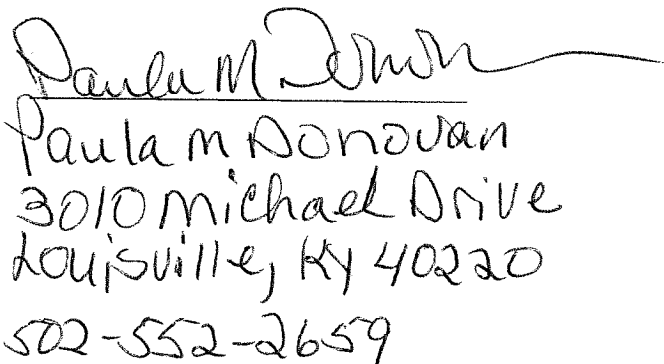 Paula M Donovan
Paula M Donovan
3010 Michael Drive
Louisville, KY 40220
502-552-2659